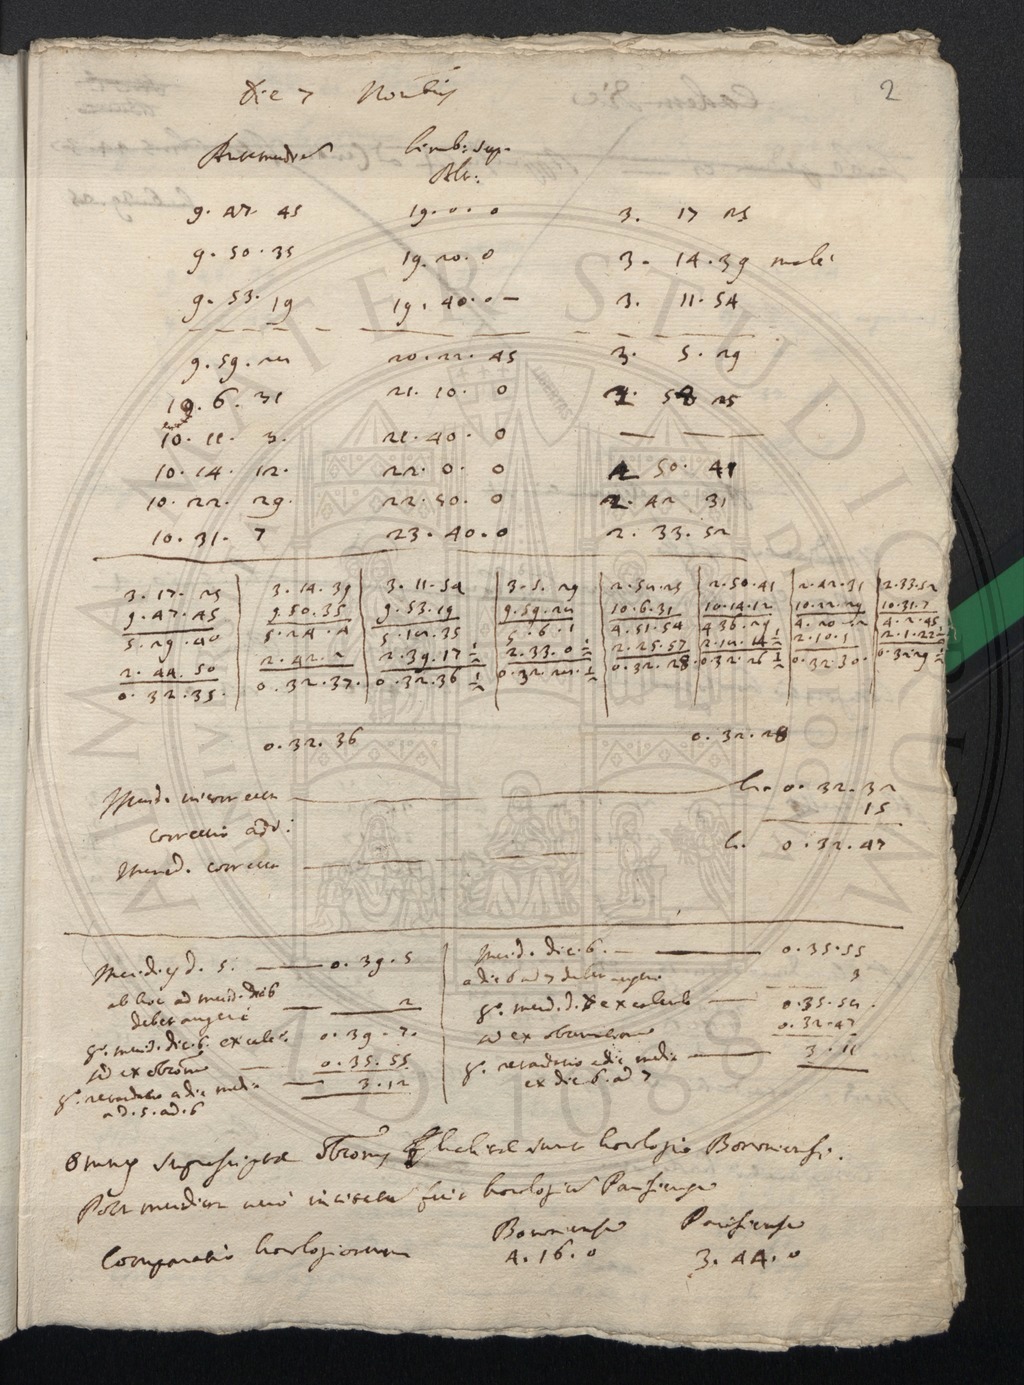 2
Die 7 Novembris
Antemeridiem Limb. sup.
Alt:
9. 47 45 19. 0. 0 3. 17 25
9. 50. 35 19. 20. 0 3. 14. 39 male
9. 53. 19 19. 40. 0 — 3. 11. 54
9. 59. 22 20. 22. 45 3. 5. 29
10. 6. 31 21. 10. 0 58 25
10. 11. 3. 21. 40. 0 — — —
10. 14. 12. 22. 0. 0 2 50. 41
10. 22. 29. 22. 50. 0 2. 42 31
10. 31. 7 23. 40. 0 2. 33. 52
3. 17. 25 3. 14. 39 3. 11. 54 3. 5. 29 10. 6. 31 2. 50. 41 2. 42. 31 2. 33. 52
9. 47. 45 9. 50. 35 9. 53. 19 9. 59. 22 4. 51. 54 10. 14. 12 10. 22. 29 10. 31. 7
5. 29. 40 5. 24. 4 5. 18. 35 5. 6. 1 2. 25. 57 4. 36. 29 4. 20. 2 4. 2. 45
2. 44. 50 2. 42. 2 2. 39. 17 ½ 2. 33. 0 ½ 0. 32. 28 2. 18. 14 ½ 2. 10. 1 2. 1. 22 ½
0. 32. 35. 0. 32. 37. 0. 32. 36 ½ 0. 32. 22 ½ 0. 32. 26 ½ 0. 32. 30. 0. 32. 29 ½
0. 32. 36 0. 32. 28
Merid. incorrecta h. 0. 32. 32
correctio add: 15
Merid. correcta h. 0. 32. 47
Meridies d. 5. 0. 39. 5
ab hoc ad merid. die 6
debet augeri 2
gº. merid. die. 6. ex calc. 0. 39. 7.
sed ex obsone 0. 35. 55
gº. retardatio a die media 3. 12
a d. 5. ad. 6
Merid. die. 6. 0. 35. 55
a die 6 ad 7 debet augeri 3
gº. merid. d. ex calculo 0. 35. 58.
sed ex observatione 0. 32. 47
gº. retardatio a die media 3. 11
ex die 6. ad 7
Omnes suprascriptae obsones habitae sunt horologio Bononiensi.
Post meridiem vero incisum fuit horologium Parisiense
Bononiense Parisiense
Comparatio horologiorum 4. 16. 0 3. 44. 0
ALMA MATER STUDIORUM
A.D. 1088
LIBERTAS